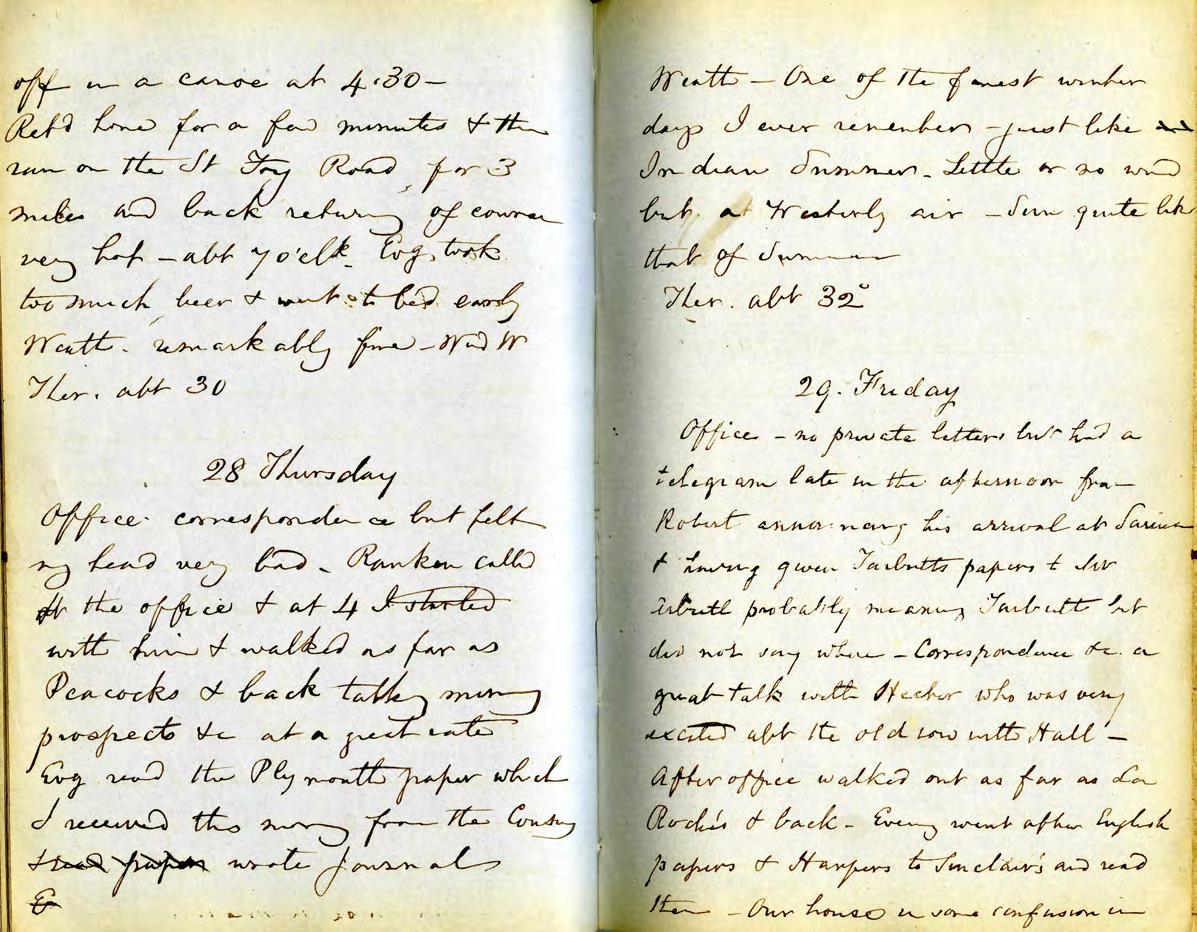 off in a canoe at 4.30 –
Retd home for a few minutes & then
ran on the St Foy Road, for 3
miles and back returng of course
very hot – abt 7 o'clk. Evg took
too much beer & went to bed early
Weath. remarkably fine – Wind W
Ther. abt 30
28 Thursday
Office correspondence but felt
my head very bad – Ranken called
at the office & at 4 I started
with him & walked as far as
Peacocks & back talkg mining
prospects &c at a great rate
Evg read the Plymouth paper which
I received this morng from the
& read papers wrote Journal
E
Weath – One of the finest winter
days I ever remember – just like
Indian Summer – Little or no wind
but a Westerly air – Sun quite like
that of Summer
Ther. abt 32°
29. Friday
Office – no private letters but had a
telegram late in the afternoon from
Robert announcing his arrival at Sarnia
& having given Tarbutts papers to
probably meaning Tarbutt but
did not say where – Correspondence &c. a
great talk with Hecker who was very
excited abt the old row with Hall –
After office walked out as far as La
Roche's & back – Eveng went after English
papers & Harpers to Sinclair's and read
them – Our house in some confusion in